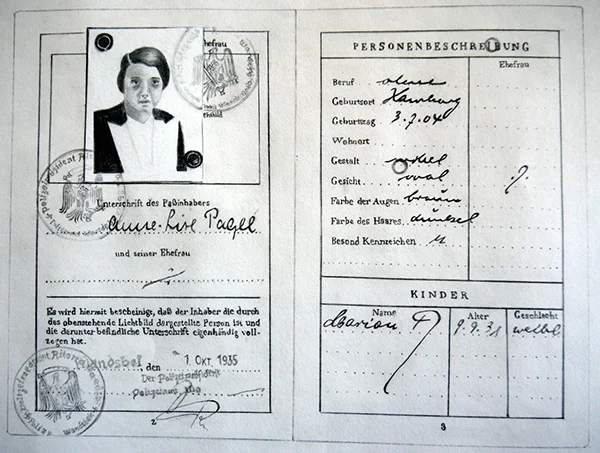 Ehefrau
Unterschrift des Paßinhabers
Anne-Lise Pagel
und seiner Ehefrau
Es wird hiermit bescheinigt, daß der Inhaber die durch
das obenstehende Lichtbild dargestellte Person ist und
die darunter befindliche Unterschrift eigenhändig voll-
zogen hat.
, den 1. Okt 1935
Der Polizeipräsident
2
PERSONENBESCHREIBUNG
Ehefrau
Beruf ohne
Geburtsort Hamburg
Geburtstag 3.7.04
Wohnort
Gestalt
Gesicht oval
Farbe der Augen braun
Farbe des Haares dunkel
Besond Kennzeichen
KINDER
Name Alter Geschlecht
Marion P 9.9.31 weibl.
3